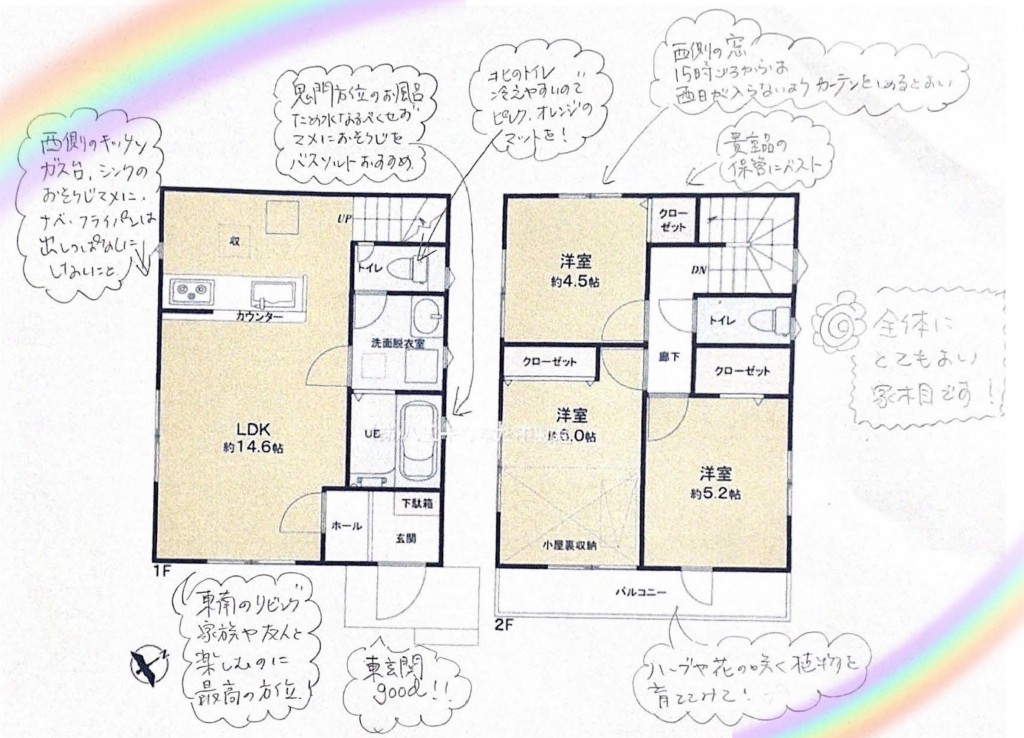 西側の窓
15時ごろからは
西日が入らないようカーテンをしめるとよい
北のトイレ
冷えやすいので
ピンク、オレンジの
マットを!
鬼門方位のお風呂
ため水なるべくせず
マメにおそうじを
バスソルトおすすめ
貴重品の
保管にベスト
西側のキッチン
ガス台、シンクの
おそうじマメに、
ナベ、フライパンは
出しっぱなしに
しないこと
UP
収
トイレ
カウンター
洗面脱衣室
LDK
約14.6帖
UB
下駄箱
ホール
玄関
1F
クロー
ゼット
洋室
約4.5帖
DN
トイレ
廊下
クローゼット
クローゼット
洋室
約6.0帖
洋室
約5.2帖
小屋裏収納
バルコニー
2F
全体に
とてもよい
家相です!
東南のリビング
家族や友人と
楽しむのに
最高の方位!
東玄関
good!!
ハーブや花の咲く植物を
育ててみて!
Z